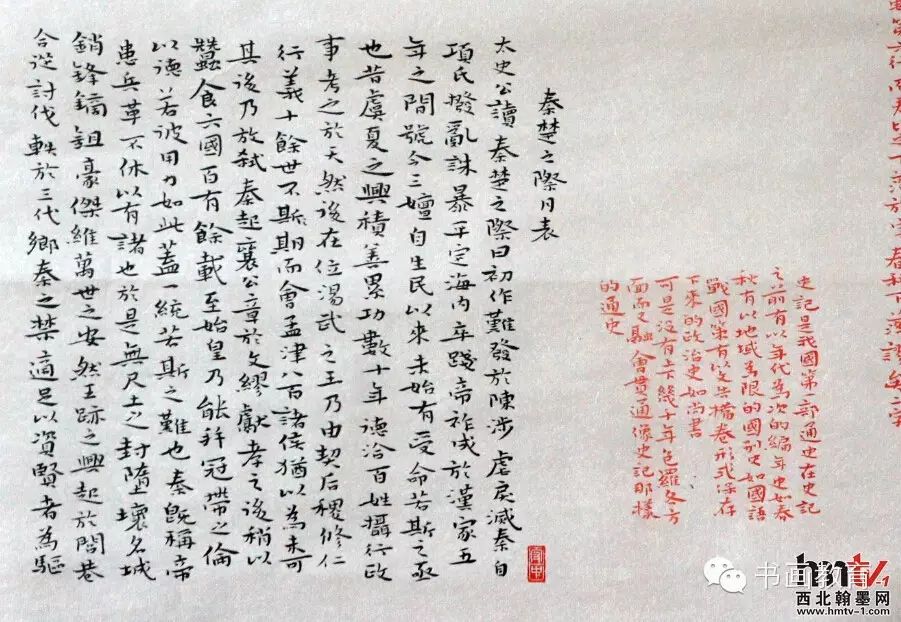 史記是我國第一部通史在史記
之前有以年代為次的編年史如春
秋有以地域為限的國別史如國語
戰國策有以文告檔卷形式保存
下來的政治史如尚書
可是沒有上幾十年包羅各方
面而又融會貫通像史記那樣
的通史
秦楚之際月表
太史公讀秦楚之際曰初作難發於陳涉虐戾滅秦自
項氏撥亂誅暴平定海內卒踐帝祚成於漢家五
年之間號令三嬗自生民以來未始有受命若斯之亟
也昔虞夏之興積善累功數十年德洽百姓攝行政
事考之於天然後在位湯武之王乃由契后稷修仁
行義十餘世不斯期而會孟津八百諸侯猶以為未可
其後乃放弒秦起襄公章於文繆獻孝之後稍以
蠶食六國百有餘載至始皇乃能并冠帶之倫
以德若彼用力如此蓋一統若斯之難也秦既稱帝
患兵革不休以有諸也於是無尺土之封墮壞名城
銷鋒鏑鉏豪傑維萬世之安然王跡之興起於閭巷
合從討伐軼於三代鄉秦之禁適足以資賢者為驅
书画教育
hmtv-1
西北翰墨网
www.hmtv-1.com